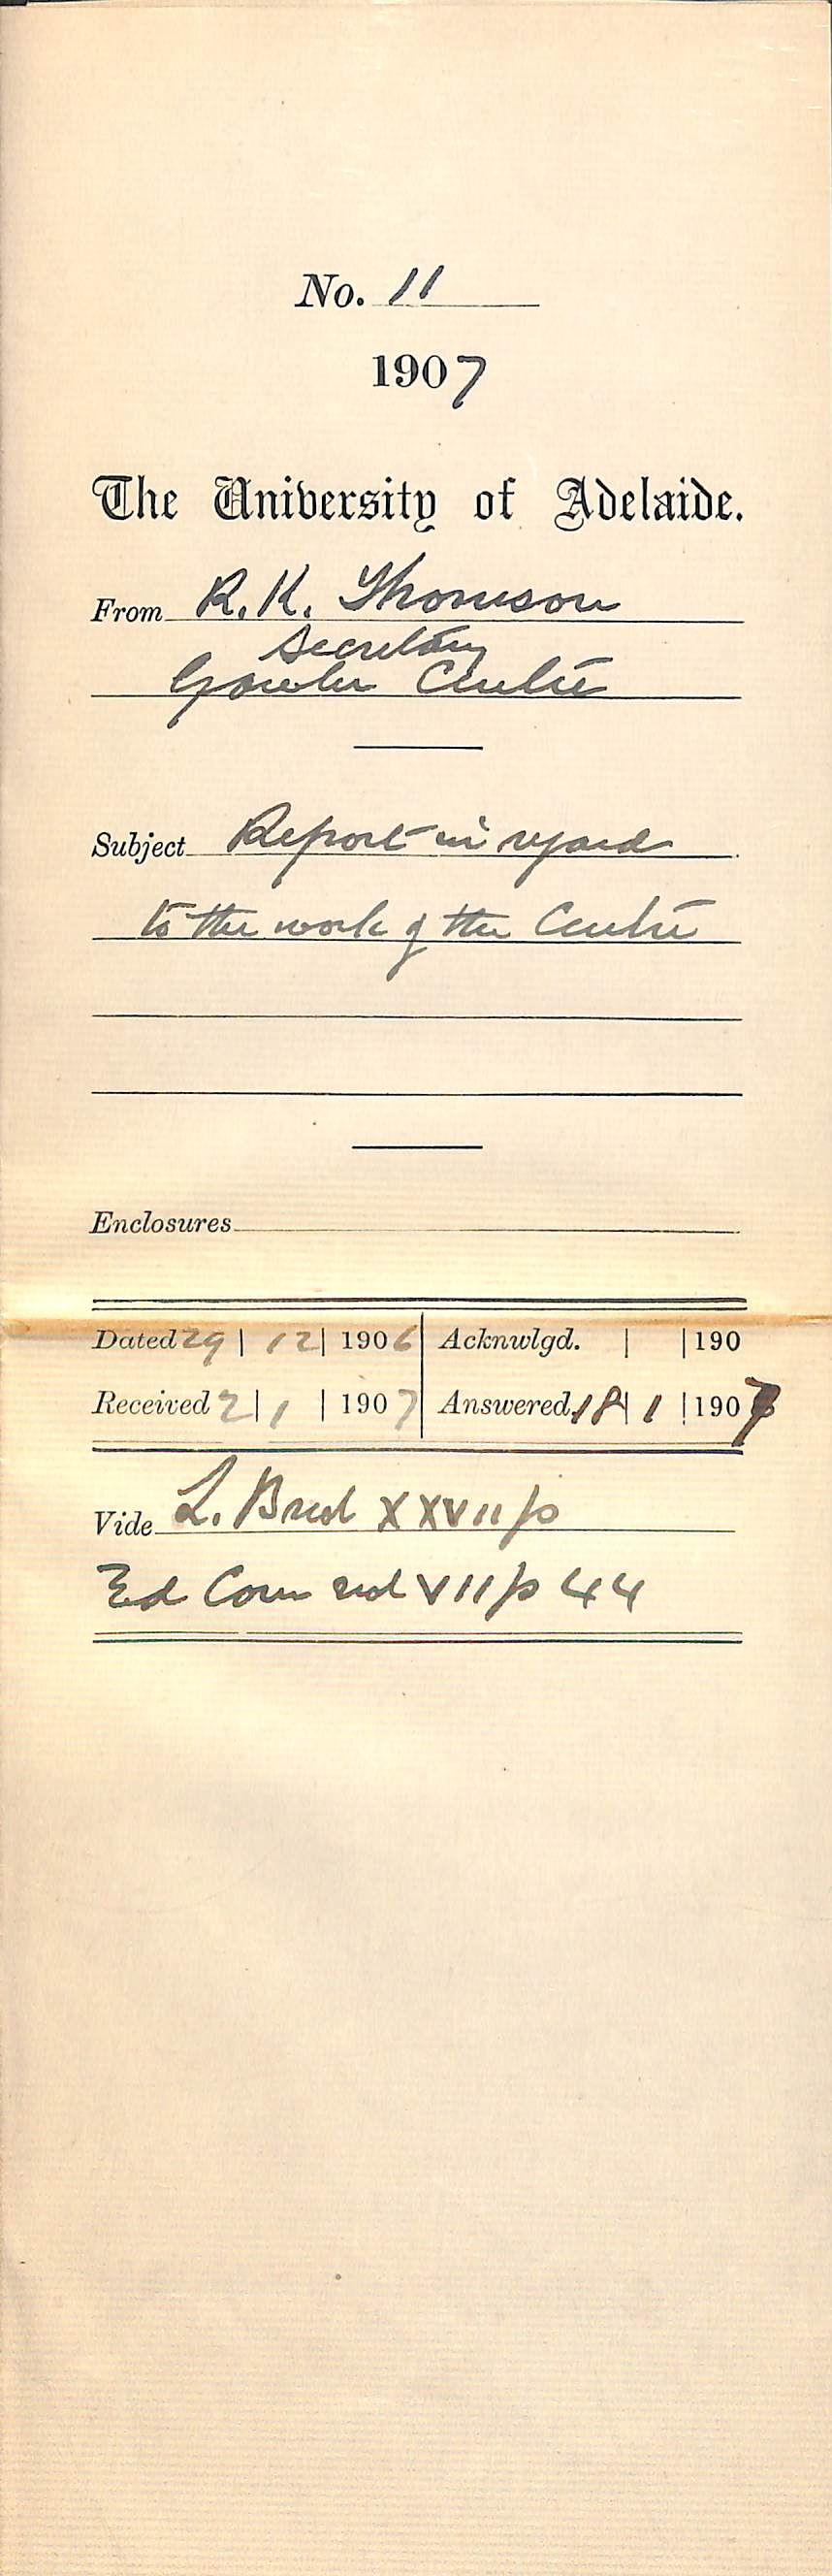 No. 11
1907
The University of Adelaide.
From R. K. Thomson
Secretary
Gawler Centre
Subject Report in regard
to the work of the Centre
Enclosures
Dated 29 | 12 | 1906 | Acknwlgd. | | 190
Received 2 | 1 | 1907 | Answered 18 | 1 | 1907
Vide L. B XXVII p
Ed Com VII p 44